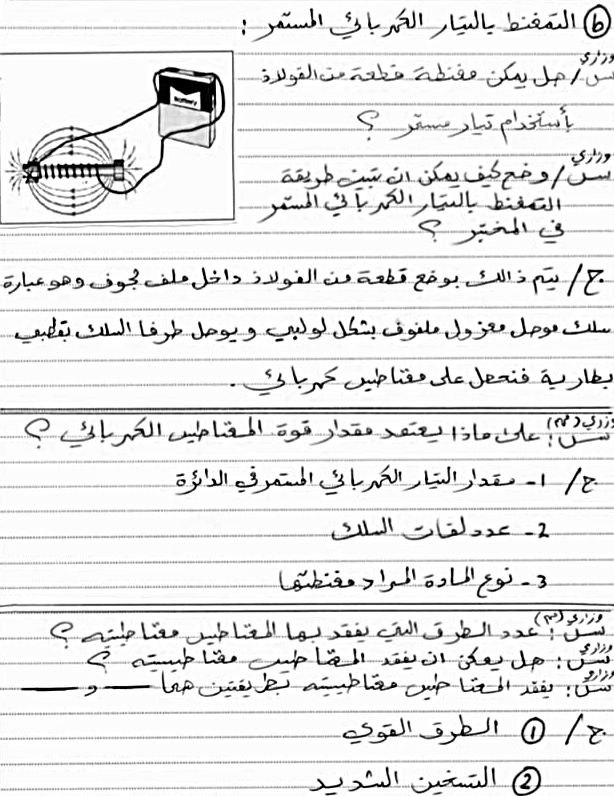 ⓑ التمغنط بالتيار الكهربائي المستمر :
وزاري
س/ هل يمكن مغنطة قطعة من الفولاذ
بأستخدام تيار مستمر ؟
Battery
وزاري
س/ وضح كيف يمكن ان تبين طريقة
التمغنط بالتيار الكهربائي المستمر
في المختبر ؟
ج/ يتم ذالك بوضع قطعة من الفولاذ داخل ملف مجوف وهو عبارة
سلك موصل معزول ملفوف بشكل لولبي ويوصل طرفا السلك بقطبي
بطارية فنحصل على مغناطيس كهربائي .
وزاري (مهم)
س: على ماذا يعتمد مقدار قوة المغناطيس الكهربائي ؟
ج/ 1- مقدار التيار الكهربائي المستمر في الدائرة
2- عدد لفات السلك
3- نوع المادة المراد مغنطتها
وزاري (مهم)
س: عدد الطرق التي يفقد بها المغناطيس مغناطيسيته ؟
وزاري
س: هل يمكن ان يفقد المغناطيس مغناطيسيته ؟
وزاري
س: يفقد المغناطيس مغناطيسيته بطريقتين هما ـــــ و ـــــ
ج/ ① الطرق القوي
② التسخين الشديد